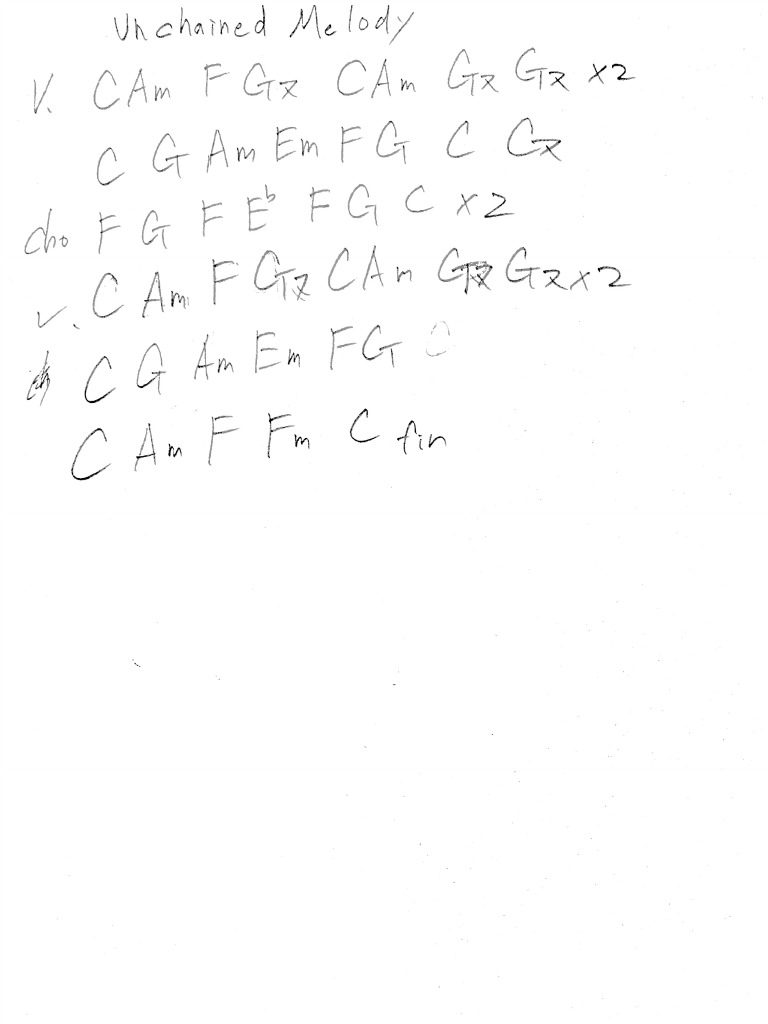 Unchained Melody
V. C Am F G7 C Am G7 G7 x2
C G Am Em F G C C7
cho F G F E♭ F G C x2
v. C Am F G7 C Am G7 G7 x2
C G Am Em F G C
C Am F Fm C fin